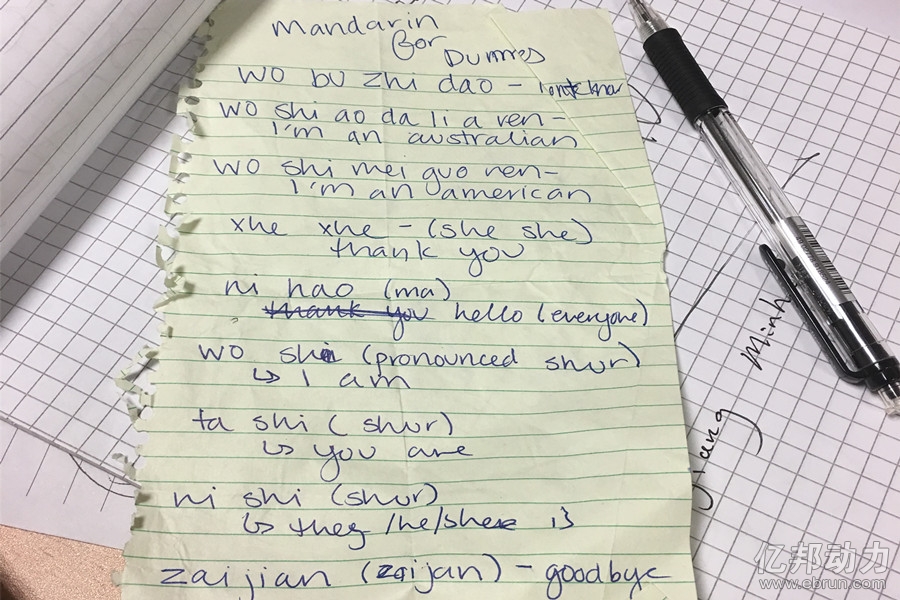 Mandarin
for Dummies
wo bu zhi dao - I dont know
wo shi ao da li a ren -
I'm an australian
wo shi mei guo ren -
I'm an american
xhe xhe - (she she)
thank you
ni hao (ma)
thank you hello (everyone)
wo shi (pronounced shur)
↳ I am
ta shi (shur)
↳ you are
ni shi (shur)
↳ they /he/she is
zaijian (zaijan) - goodbye
Minh
亿邦动力
www.ebrun.com